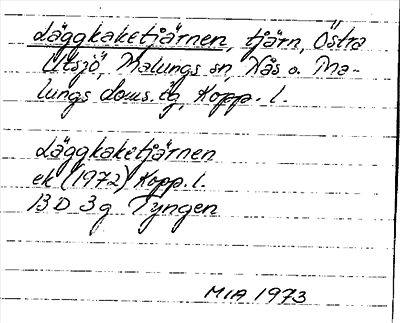 Läggkaketjärnen, tjärn, Östra
Utsjö, Malungs sn, Nås o. Ma-
lungs doms. tg, Kopp. l.
Läggkaketjärnen
ek (1972) Kopp. l.
13 D 3 g Tyngen
MIA 1973